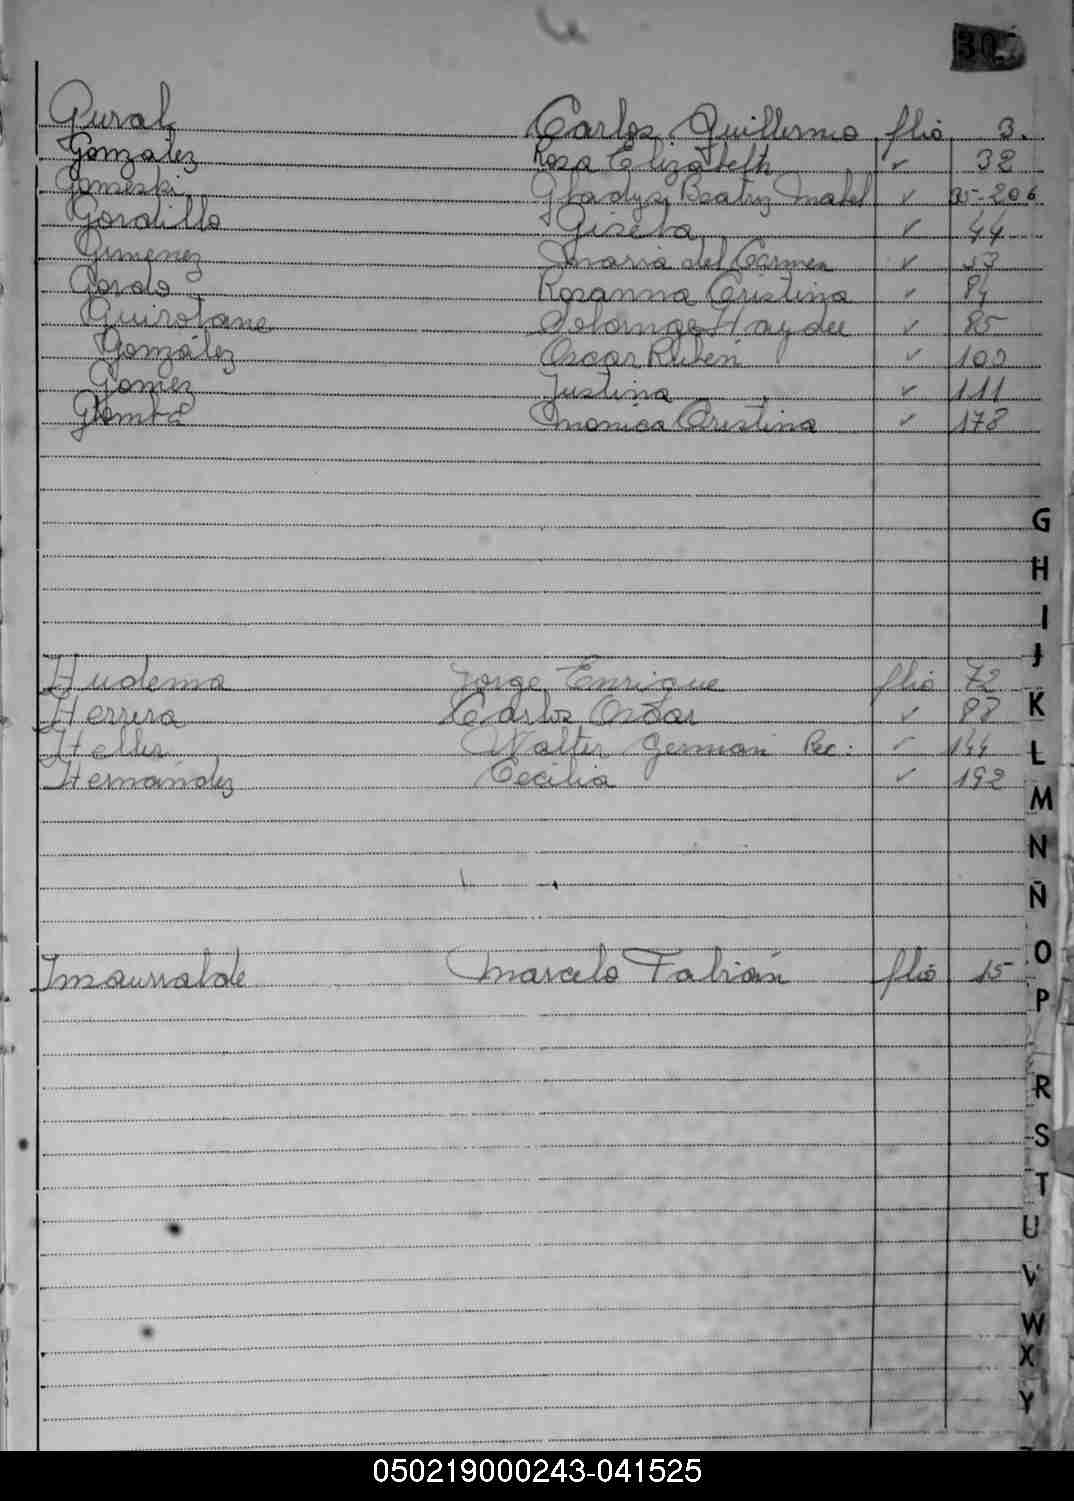 30
Gural Carlos Guillermo flio 3.
González Rosa Elizabeth ✓ 32
Gomeski Gladys Beatriz Mabel ✓ 35-206
Gordillo Gisela ✓ 44
Gimenez Maria del Carmen ✓ 53
Gordo Rosanna Cristina ✓ 84
Guirolane Solange Haydee ✓ 85
González Oscar Ruben ✓ 103
Gomez Justina ✓ 111
Monica Cristina ✓ 178
G
H
I
J
Hudema Jorge Enrique flio 72
Herrera Carlos Oscar ✓ 87
K
Heller Walter German Rec: ✓ 144
L
Hernández Cecilia ✓ 192
M
N
Ñ
O
Imaurralde Marcelo Fabián flio 15
P
R
S
T
U
V
W
X
Y
050219000243-041525